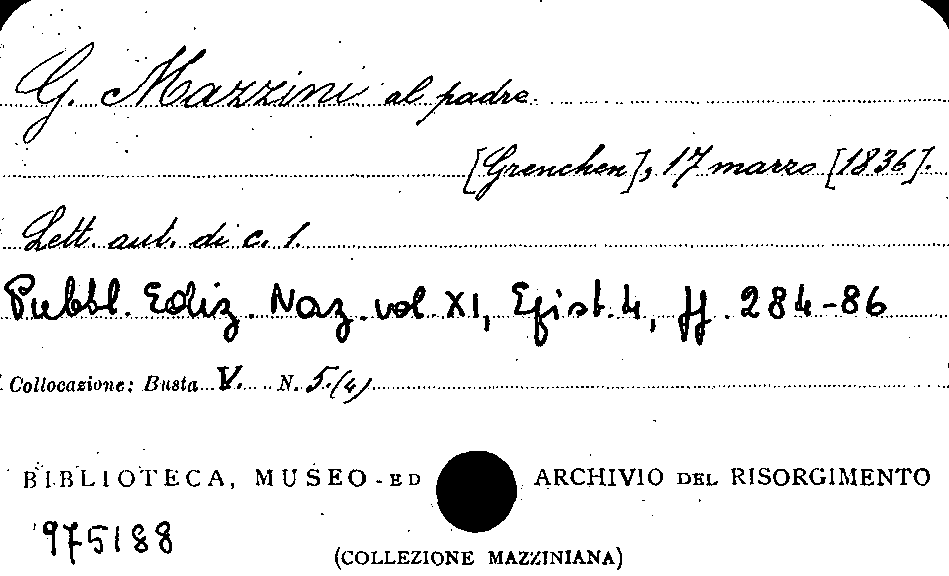 G. Mazzini al padre
[Grenchen], 17 marzo [1836].
Lett. aut. di c. 1.
Pubbl. Ediz. Naz. vol. XI, Epist. 4, ff. 284-86
Collocazione: Busta V. N. 5.(4)
BIBLIOTECA, MUSEO ED ARCHIVIO DEL RISORGIMENTO
975188
(COLLEZIONE MAZZINIANA)